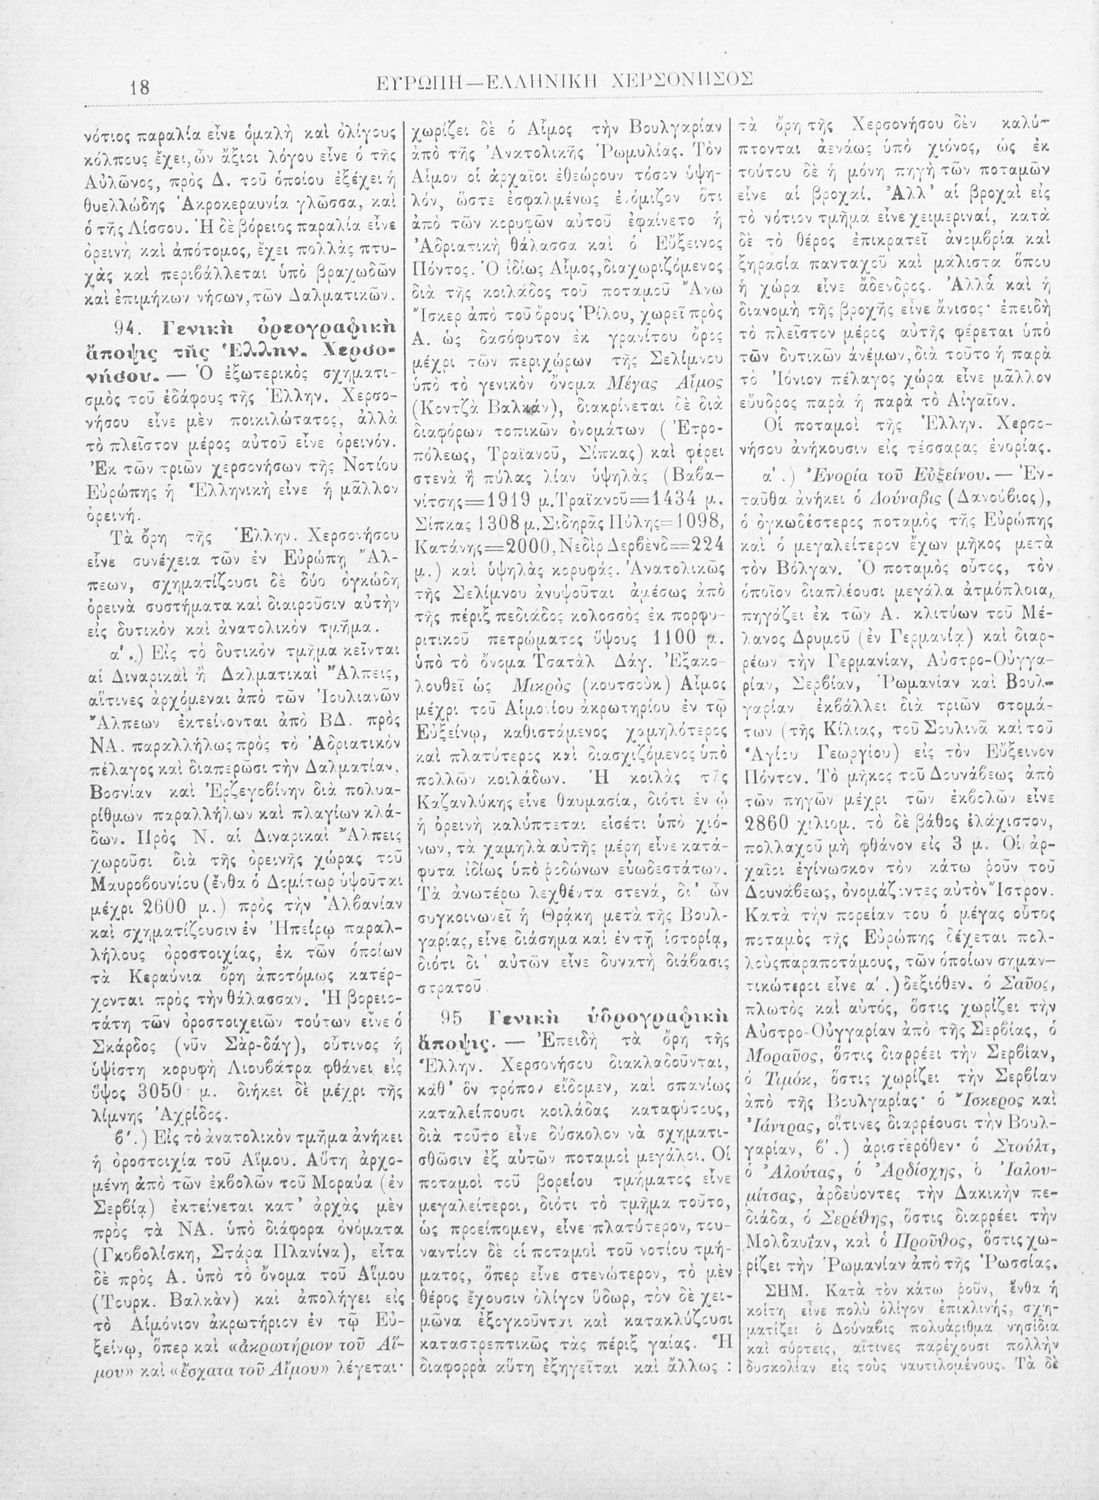 18
ΕΥΡΩΠΗ—ΕΛΛΗΝΙΚΗ ΧΕΡΣΟΝΗΣΟΣ
νότιος παραλία εἶνε ὁμαλὴ καὶ ὀλίγους
κόλπους ἔχει, ὧν ἄξιοι λόγου εἶνε ὁ τῆς
Αὐλῶνος, πρὸς Δ. τοῦ ὁποίου ἐξέχει ἡ
θυελλώδης Ἀκροκεραυνία γλῶσσα, καὶ
ὁ τῆς Λίσσου. Ἡ δὲ βόρειος παραλία εἶνε
ὀρεινὴ καὶ ἀπότομος, ἔχει πολλὰς πτυ-
χὰς καὶ περιβάλλεται ὑπὸ βραχωδῶν
καὶ ἐπιμήκων νήσων, τῶν Δαλματικῶν.
94. Γενικὴ ὀρεογραφικὴ
ἄποψις τῆς Ἑλλην. Χερσο-
νήσου. — Ὁ ἐξωτερικὸς σχηματι-
σμὸς τοῦ ἐδάφους τῆς Ἑλλην. Χερσο-
νήσου εἶνε μὲν ποικιλώτατος, ἀλλὰ
τὸ πλεῖστον μέρος αὐτοῦ εἶνε ὀρεινόν.
Ἐκ τῶν τριῶν χερσονήσων τῆς Νοτίου
Εὐρώπης ἡ Ἑλληνικὴ εἶνε ἡ μᾶλλον
ὀρεινή.
Τὰ ὄρη τῆς Ἑλλην. Χερσονήσου
εἶνε συνέχεια τῶν ἐν Εὐρώπῃ Ἄλ-
πεων, σχηματίζουσι δὲ δύο ὀγκώδη
ὀρεινὰ συστήματα καὶ διαιροῦσιν αὐτὴν
εἰς δυτικὸν καὶ ἀνατολικὸν τμῆμα.
α΄.) Εἰς τὸ δυτικὸν τμῆμα κεῖνται
αἱ Διναρικαὶ ἢ Δαλματικαὶ Ἄλπεις,
αἵτινες ἀρχόμεναι ἀπὸ τῶν Ἰουλιανῶν
Ἄλπεων ἐκτείνονται ἀπὸ ΒΔ. πρὸς
ΝΑ. παραλλήλως πρὸς τὸ Ἀδριατικὸν
πέλαγος καὶ διαπερῶσι τὴν Δαλματίαν,
Βοσνίαν καὶ Ἐρζεγοβίνην διὰ πολυα-
ρίθμων παραλλήλων καὶ πλαγίων κλά-
δων. Πρὸς Ν. αἱ Διναρικαὶ Ἄλπεις
χωροῦσι διὰ τῆς ὀρεινῆς χώρας τοῦ
Μαυροβουνίου (ἔνθα ὁ Δομίτωρ ὑψοῦται
μέχρι 2600 μ.) πρὸς τὴν Ἀλβανίαν
καὶ σχηματίζουσιν ἐν Ἠπείρῳ παραλ-
λήλους ὀροστοιχίας, ἐκ τῶν ὁποίων
τὰ Κεραύνια ὄρη ἀποτόμως κατέρ-
χονται πρὸς τὴν θάλασσαν. Ἡ βορειο-
τάτη τῶν ὀροστοιχειῶν τούτων εἶνε ὁ
Σκάρδος (νῦν Σὰρ-δάγ), οὗτινος ἡ
ὑψίστη κορυφὴ Λιουβάτρα φθάνει εἰς
ὕψος 3050 μ. διήκει δὲ μέχρι τῆς
λίμνης Ἀχρίδος.
β΄.) Εἰς τὸ ἀνατολικὸν τμῆμα ἀνήκει
ἡ ὀροστοιχία τοῦ Αἵμου. Αὕτη ἀρχο-
μένη ἀπὸ τῶν ἐκβολῶν τοῦ Μοραύα (ἐν
Σερβίᾳ) ἐκτείνεται κατ᾿ ἀρχὰς μὲν
πρὸς τὰ ΝΑ. ὑπὸ διάφορα ὀνόματα
(Γκοβολίσκη, Στάρα Πλανίνα), εἶτα
δὲ πρὸς Α. ὑπὸ τὸ ὄνομα τοῦ Αἵμου
(Τουρκ. Βαλκὰν) καὶ ἀπολήγει εἰς
τὸ Αἱμόνιον ἀκρωτήριον ἐν τῷ Εὐ-
ξείνῳ, ὅπερ καὶ «ἀκρωτήριον τοῦ Αἵ-
μου» καὶ «ἔσχατα τοῦ Αἵμου» λέγεται·
χωρίζει δὲ ὁ Αἷμος τὴν Βουλγαρίαν
ἀπὸ τῆς Ἀνατολικῆς Ῥωμυλίας. Τὸν
Αἷμον οἱ ἀρχαῖοι ἐθεώρουν τόσον ὑψη-
λόν, ὥστε ἐσφαλμένως ἐνόμιζον ὅτι
ἀπὸ τῶν κορυφῶν αὐτοῦ ἐφαίνετο ἡ
Ἀδριατικὴ θάλασσα καὶ ὁ Εὔξεινος
Πόντος. Ὁ ἰδίως Αἷμος, διαχωριζόμενος
διὰ τῆς κοιλάδος τοῦ ποταμοῦ Ἄνω
Ἴσκερ ἀπὸ τοῦ ὄρους Ῥίλου, χωρεῖ πρὸς
Α. ὡς δασόφυτον ἐκ γρανίτου ὄρος
μέχρι τῶν περιχώρων τῆς Σελίμνου
ὑπὸ τὸ γενικὸν ὄνομα Μέγας Αἷμος
(Κοντζὰ Βαλκάν), διακρίνεται δὲ διὰ
διαφόρων τοπικῶν ὀνομάτων (Ἐτρο-
πόλεως, Τραϊανοῦ, Σίπκας) καὶ φέρει
στενὰ ἢ πύλας λίαν ὑψηλὰς (Βαβα-
νίτσης=1919 μ. Τραϊανοῦ=1434 μ.
Σίπκας 1308 μ. Σιδηρᾶς Πύλης=1098,
Κατάνης=2000, Νεδὶρ Δερβένδ=224
μ.) καὶ ὑψηλὰς κορυφάς. Ἀνατολικῶς
τῆς Σελίμνου ἀνυψοῦται ἀμέσως ἀπὸ
τῆς πέριξ πεδιάδος κολοσσὸς ἐκ πορφυ-
ριτικοῦ πετρώματος ὕψους 1100 μ.
ὑπὸ τὸ ὄνομα Τσατὰλ Δάγ. Ἐξακο-
λουθεῖ ὡς Μικρὸς (κουτσοὺκ) Αἷμος
μέχρι τοῦ Αἱμονίου ἀκρωτηρίου ἐν τῷ
Εὐξείνῳ, καθιστάμενος χαμηλότερος
καὶ πλατύτερος καὶ διασχιζόμενος ὑπὸ
πολλῶν κοιλάδων. Ἡ κοιλὰς τῆς
Καζανλύκης εἶνε θαυμασία, διότι ἐν ᾧ
ἡ ὀρεινὴ καλύπτεται εἰσέτι ὑπὸ χιό-
νων, τὰ χαμηλὰ αὐτῆς μέρη εἶνε κατά-
φυτα ἰδίως ὑπὸ ῥοδώνων εὐωδεστάτων.
Τὰ ἀνωτέρω λεχθέντα στενά, δι᾿ ὧν
συγκοινωνεῖ ἡ Θράκη μετὰ τῆς Βουλ-
γαρίας, εἶνε διάσημα καὶ ἐν τῇ ἱστορίᾳ,
διότι δι᾿ αὐτῶν εἶνε δυνατὴ διάβασις
στρατοῦ.
95 Γενικὴ ὑδρογραφικὴ
ἄποψις. — Ἐπειδὴ τὰ ὄρη τῆς
Ἑλλην. Χερσονήσου διακλαδοῦνται,
καθ᾿ ὃν τρόπον εἴδομεν, καὶ σπανίως
καταλείπουσι κοιλάδας καταφύτους,
διὰ τοῦτο εἶνε δύσκολον νὰ σχηματι-
σθῶσιν ἐξ αὐτῶν ποταμοὶ μεγάλοι. Οἱ
ποταμοὶ τοῦ βορείου τμήματος εἶνε
μεγαλείτεροι, διότι τὸ τμῆμα τοῦτο,
ὡς προείπομεν, εἶνε πλατύτερον, τοὐ-
ναντίον δὲ οἱ ποταμοὶ τοῦ νοτίου τμή-
ματος, ὅπερ εἶνε στενώτερον, τὸ μὲν
θέρος ἔχουσιν ὀλίγον ὕδωρ, τὸν δὲ χει-
μῶνα ἐξογκοῦνται καὶ κατακλύζουσι
καταστρεπτικῶς τὰς πέριξ γαίας. Ἡ
διαφορρὰ αὕτη ἐξηγεῖται καὶ ἄλλως :
τὰ ὄρη τῆς Χερσονήσου δὲν καλύ-
πτονται ἀενάως ὑπὸ χιόνος, ὡς ἐκ
τούτου δὲ ἡ μόνη πηγὴ τῶν ποταμῶν
εἶνε αἱ βροχαί. Ἀλλ᾿ αἱ βροχαὶ εἰς
τὸ νότιον τμῆμα εἶνε χειμεριναί, κατὰ
δὲ τὸ θέρος ἐπικρατεῖ ἀνομβρία καὶ
ξηρασία πανταχοῦ καὶ μάλιστα ὅπου
ἡ χώρα εἶνε ἄδενδρος. Ἀλλὰ καὶ ἡ
διανομὴ τῆς βροχῆς εἶνε ἄνισος· ἐπειδὴ
τὸ πλεῖστον μέρος αὐτῆς φέρεται ὑπὸ
τῶν δυτικῶν ἀνέμων, διὰ τοῦτο ἡ παρὰ
τὸ Ἰόνιον πέλαγος χώρα εἶνε μᾶλλον
εὔυδρος παρὰ ἡ παρὰ τὸ Αἰγαῖον.
Οἱ ποταμοὶ τῆς Ἑλλην. Χερσο-
νήσου ἀνήκουσιν εἰς τέσσαρας ἐνορίας.
α΄.) Ἐνορία τοῦ Εὐξείνου.— Ἐν-
ταῦθα ἀνήκει ὁ Δούναβις (Δανούβιος),
ὁ ὀγκωδέστερος ποταμὸς τῆς Εὐρώπης
καὶ ὁ μεγαλείτερον ἔχων μῆκος μετὰ
τὸν Βόλγαν. Ὁ ποταμὸς οὗτος, τὸν
ὁποῖον διαπλέουσι μεγάλα ἀτμόπλοια,
πηγάζει ἐκ τῶν Α. κλιτύων τοῦ Μέ-
λανος Δρυμοῦ (ἐν Γερμανίᾳ) καὶ διαρ-
ρέων τὴν Γερμανίαν, Αὐστρο-Οὑγγα-
ρίαν, Σερβίαν, Ῥωμανίαν καὶ Βουλ-
γαρίαν ἐκβάλλει διὰ τριῶν στομά-
των (τῆς Κίλιας, τοῦ Σουλινᾶ καὶ τοῦ
Ἁγίου Γεωργίου) εἰς τὸν Εὔξεινον
Πόντον. Τὸ μῆκος τοῦ Δουνάβεως ἀπὸ
τῶν πηγῶν μέχρι τῶν ἐκβολῶν εἶνε
2860 χιλιομ. τὸ δὲ βάθος ἐλάχιστον,
πολλαχοῦ μὴ φθάνον εἰς 3 μ. Οἱ ἀρ-
χαῖοι ἐγίνωσκον τὸν κάτω ῥοῦν τοῦ
Δουνάβεως, ὀνομάζοντες αὐτὸν Ἴστρον.
Κατὰ τὴν πορείαν του ὁ μέγας οὗτος
ποταμὸς τῆς Εὐρώπης δέχεται πολ-
λοὺς παραποτάμους, τῶν ὁποίων σημαν-
τικώτεροι εἶνε α΄.) δεξιόθεν. ὁ Σαῦος,
πλωτὸς καὶ αὐτός, ὅστις χωρίζει τὴν
Αὐστρο-Οὑγγαρίαν ἀπὸ τῆς Σερβίας, ὁ
Μοραῦος, ὅστις διαρρέει τὴν Σερβίαν,
ὁ Τιμόκ, ὅστις χωρίζει τὴν Σερβίαν
ἀπὸ τῆς Βουλγαρίας· ὁ Ἴσκερος καὶ
Ἰάντρας, οἵτινες διαρρέουσι τὴν Βουλ-
γαρίαν, β΄.) ἀριστερόθεν· ὁ Στούλτ,
ὁ Ἀλούτας, ὁ Ἀρδίσχης, ὁ Ἰαλου-
μίτσας, ἀρδεύοντες τὴν Δακικὴν πε-
διάδα, ὁ Σερέθης, ὅστις διαρρέει τὴν
Μολδαυΐαν, καὶ ὁ Προῦθος, ὅστις χω-
ρίζει τὴν Ῥωμανίαν ἀπὸ τῆς Ῥωσσίας.
ΣΗΜ. Κατὰ τὸν κάτω ῥοῦν, ἔνθα ἡ
κοίτη εἶνε πολὺ ὀλίγον ἐπικλινής, σχη-
ματίζει ὁ Δούναβις πολυάριθμα νησίδια
καὶ σύρτεις, αἵτινες παρέχουσι πολλὴν
δυσκολίαν εἰς τοὺς ναυτιλομένους. Τὰ δὲ